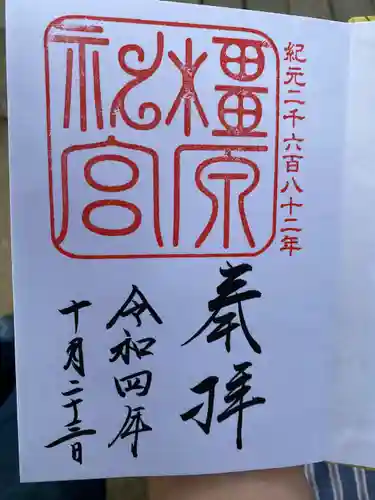 紀元二千六百八十二年
橿原
神宮
奉拝
令和四年
十月二十三日